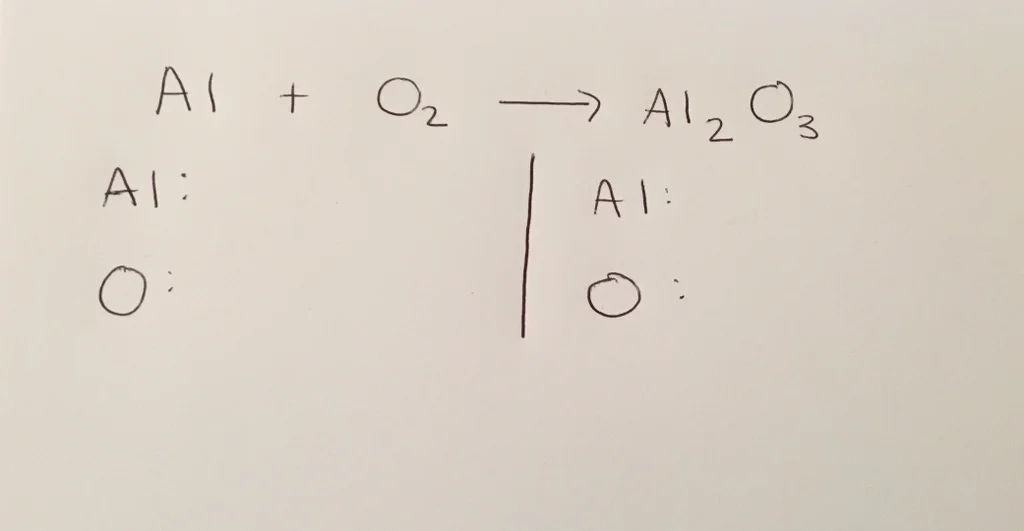 Al + O₂ → Al₂O₃
Al: | Al:
O: | O: